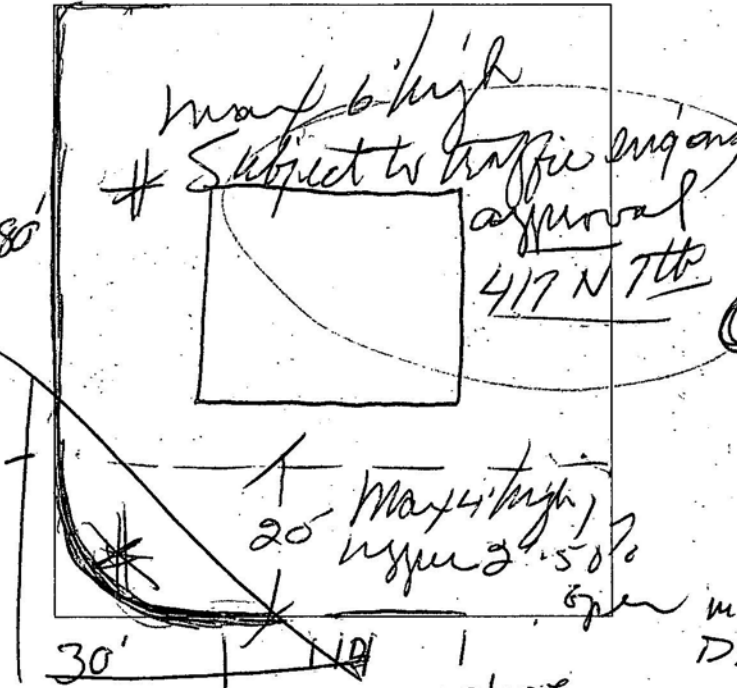 max 6' high
# Subject to traffic engr
approval
417 N 7th
80'
20' Max 4' high,
upper 2' 50%
open
30'